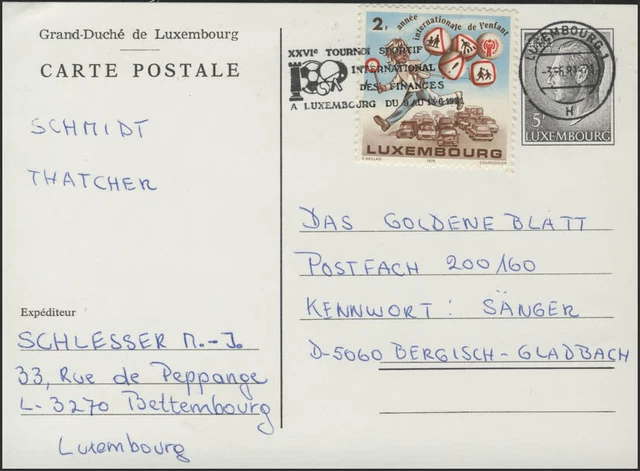 Grand-Duché de Luxembourg
CARTE POSTALE
XXVIe TOURNOI SPORTIF
INTERNATIONAL
DES FINANCES
A LUXEMBOURG DU 8 AU
2F
année internationale de l'enfant
LUXEMBOURG
1979
LUXEMBOURG 1
H
5F
LUXEMBOURG
SCHMIDT
THATCHER
DAS GOLDENE BLATT
POSTFACH 200160
KENNWORT: SÄNGER
D-5060 BERGISCH-GLADBACH
Expéditeur
SCHLESSER M.-J.
33, Rue de Peppange
L-3270 Bettembourg
Luxembourg